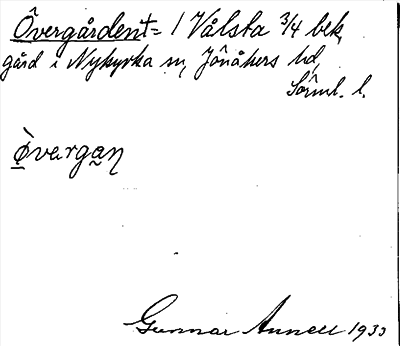 Övergården = 1 Vålsta 3/4 bek
gård i Nykyrka sn, Jönåkers hd,
Sörml. l.
òvargaꞑ
Gunnar Annell 1933